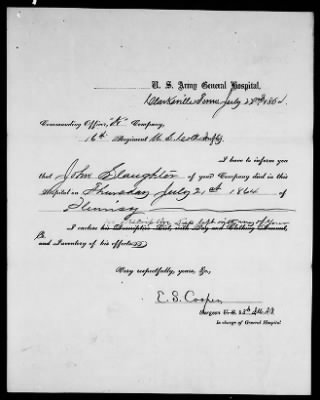 U. S. Army General Hospital,
Clarksville Tenn July 1864.
Commanding Officer, "K" Company,
16th Regiment U. S. Co. Infty.
I have to inform you
that John Slaughter of your Company died in this
Hospital on Thursday July 21st 1864 of
Pleurisy
I enclose his Descriptive List, with Pay and Clothing Account,
and Inventory of his effects.
Very respectfully, yours, &c,
E. S. Cooper
Surgeon
In charge of General Hospital